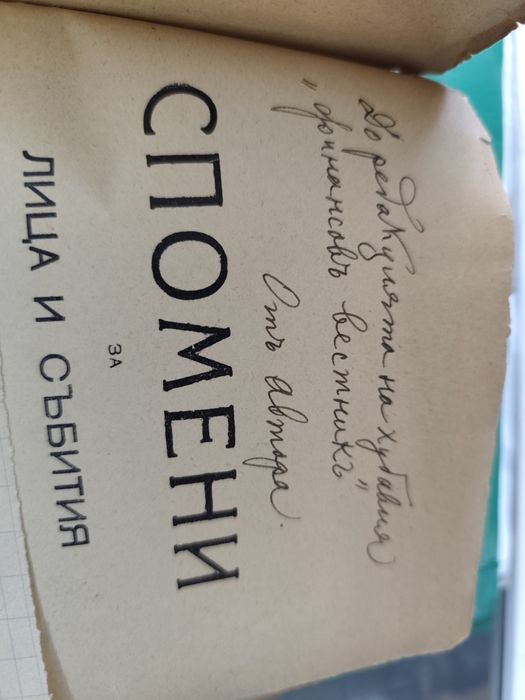 До редакцията на хубавия
„Финансовъ вестникъ"
Отъ автора.
СПОМЕНИ
ЗА
ЛИЦА И СЪБИТИЯ